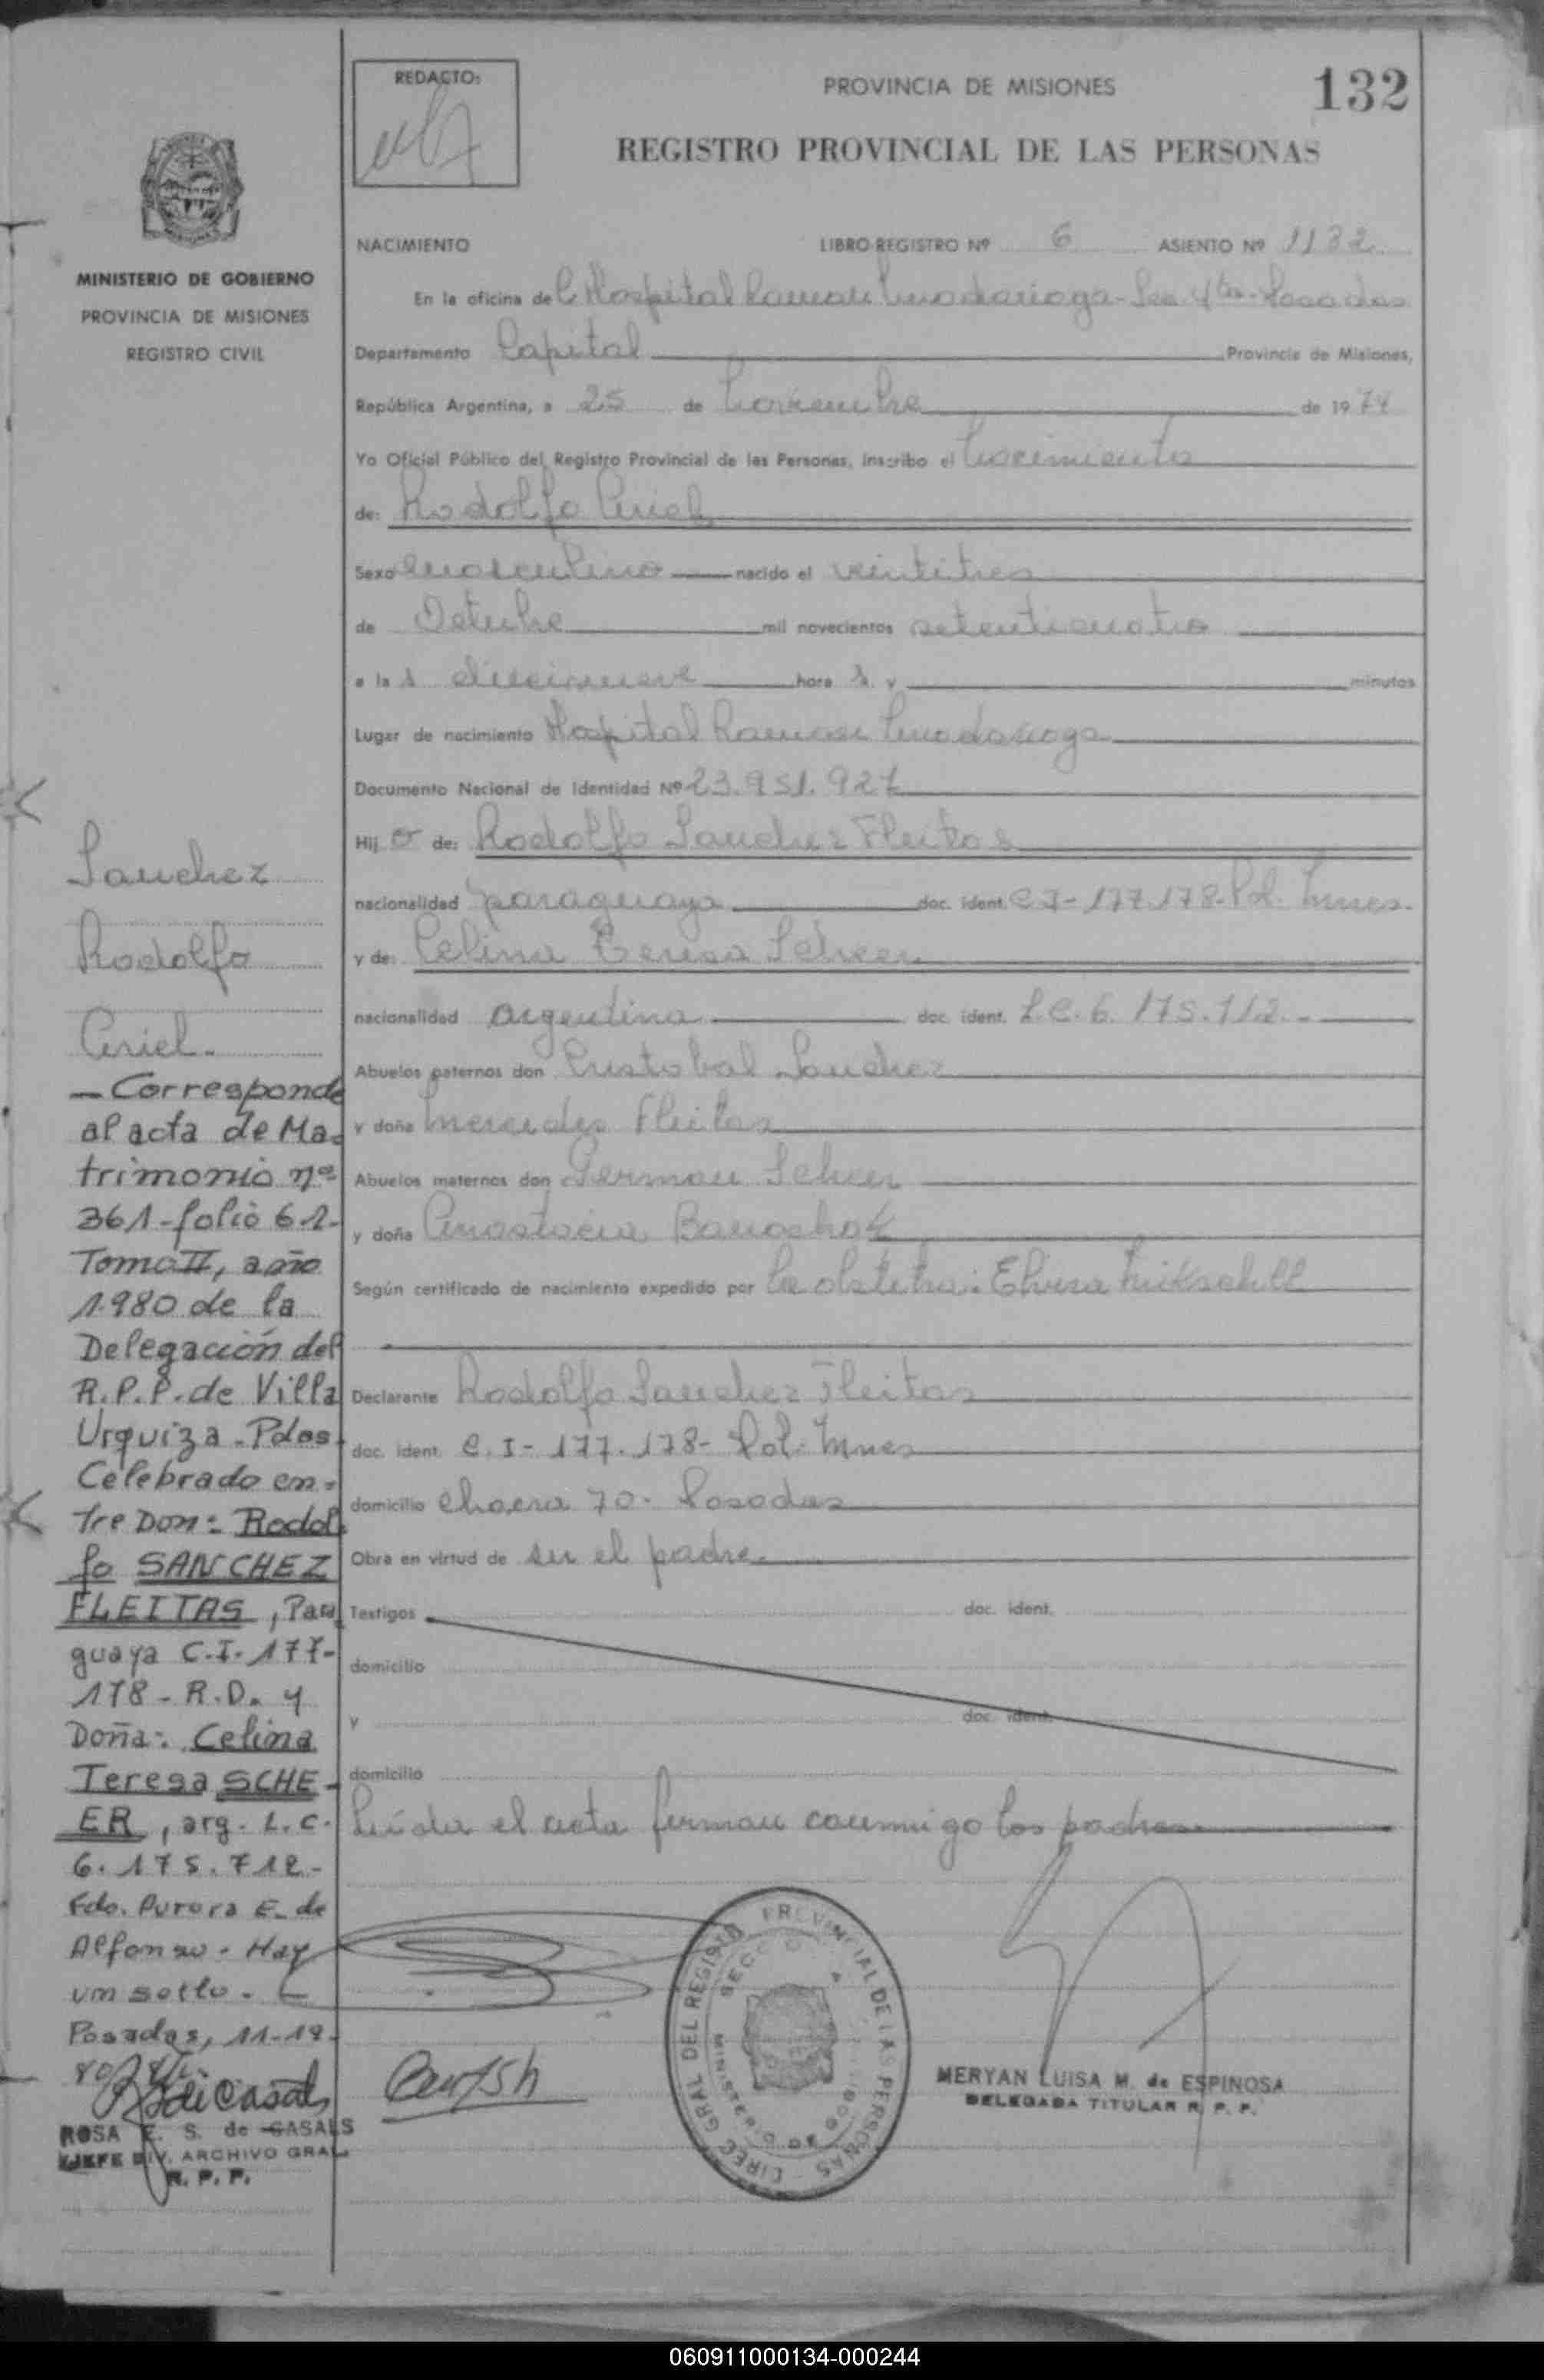 REDACTO:
PROVINCIA DE MISIONES
132
REGISTRO PROVINCIAL DE LAS PERSONAS
NACIMIENTO LIBRO-REGISTRO Nº 6 ASIENTO Nº 1132
En la oficina del Hospital Ramon Madariaga - Sec 4ta - Posadas
Departamento Capital Provincia de Misiones,
República Argentina, a 25 de Noviembre de 1974
Yo Oficial Público del Registro Provincial de las Personas, inscribo el Nacimiento
de: Rodolfo Ariel
Sexo masculino nacido el veintitres
de Octubre mil novecientos setenticuatro
a las diecinueve horas y minutos
Lugar de nacimiento Hospital Ramon Madariaga
Documento Nacional de Identidad Nº 23.951.927
Hijo de: Rodolfo Sanchez Fleitas
nacionalidad paraguaya doc. ident. C I - 177.178 - Pol. Mnes.
y de: Celina Teresa Scheer
nacionalidad argentina doc. ident. L.C. 6.175.712.-
Abuelos paternos don Cristobal Sanchez
y doña Mercedes Fleitas
Abuelos maternos don German Scheer
y doña Anastacia
Según certificado de nacimiento expedido por la obstetra: Elvira
Declarante Rodolfo Sanchez Fleitas
doc. ident. C. I - 177.178 - Pol. Mnes
domicilio Chacra 70 - Posadas
Obra en virtud de ser el padre.
Testigos doc. ident.
domicilio
y doc. ident.
domicilio
Leida el acta firman conmigo los padres
MERYAN LUISA M. de ESPINOSA
DELEGADA TITULAR R. P. P.
DIREC GRAL DEL REGISTRO PROVINCIAL DE LAS PERSONAS
MINISTERIO DE GOBIERNO
PROVINCIA DE MISIONES
REGISTRO CIVIL
Sanchez
Rodolfo
Ariel.
- Corresponde
al acta de Ma-
trimonio nº
361 - folio 61-
Tomo II, año
1.980 de la
Delegación del
R.P.P. de Villa
Urquiza - Pdas.
Celebrado en-
tre Don: Rodol
fo SANCHEZ
FLEITAS, Para
guaya C.I. 177-
178 - R.D. y
Doña: Celina
Teresa SCHE-
ER, arg. L.C.
6.175.712-
Fdo. Aurora E. de
Alfonso - Hay
un sello.
Posadas, 11-12-
80
ROSA E. S. de CASALS
JEFE DIV. ARCHIVO GRAL
R. P. P.
060911000134-000244